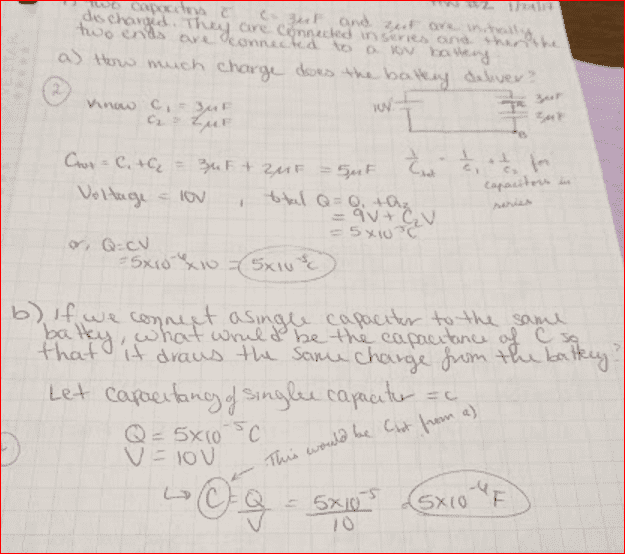 two capacitors C C = 3μF and 2μF are initially
discharged. They are connected in series and then the
two ends are connected to a 10V battery.
a) How much charge does the battery deliver?
②
Know C₁ = 3μF
C₂ = 2μF
10V
3μF
2μF
B
Ctot = C₁ + C₂ = 3μF + 2μF = 5μF
1/Ctot = 1/C₁ + 1/C₂ for
capacitors in
series
Voltage = 10V , total Q = Q₁ + Q₂
= C₁V + C₂V
= 5 x 10⁻⁵C
or, Q = CV
= 5x10⁻⁶ x 10 = 5x10⁻⁵C
b) If we connect a single capacitor to the same
battey, what would be the capacitance of C so
that it draws the same charge from the battery?
Let capacitancy of single capacitor = C
Q = 5x10⁻⁵C
V = 10V
This would be Ctot from a)
↳ C = Q/V = 5x10⁻⁵/10 = 5x10⁻⁴F